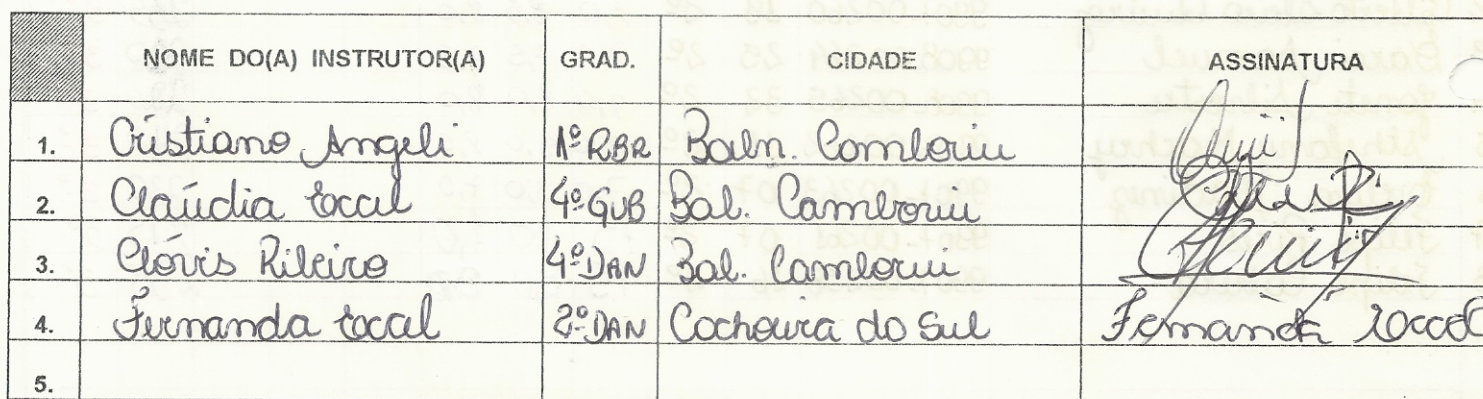 NOME DO(A) INSTRUTOR(A) GRAD. CIDADE ASSINATURA
1. Cristiano Angeli 1º RBR Baln. Camboriu
2. Claúdia Eccel 4º GUB Bal. Camboriu
3. Clóvis Ribeiro 4º DAN Bal. Camboriu
4. Fernanda Eccel 2º DAN Cachoeira do Sul Fernanda
5.